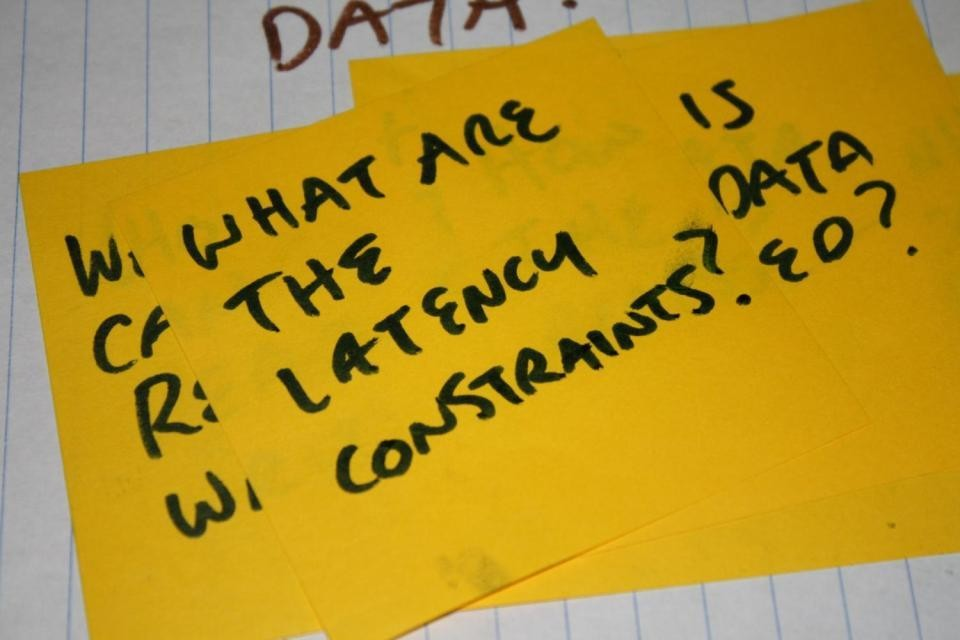 DATA?
WHAT ARE
THE
LATENCY
CONSTRAINTS?
IS
DATA
ED?